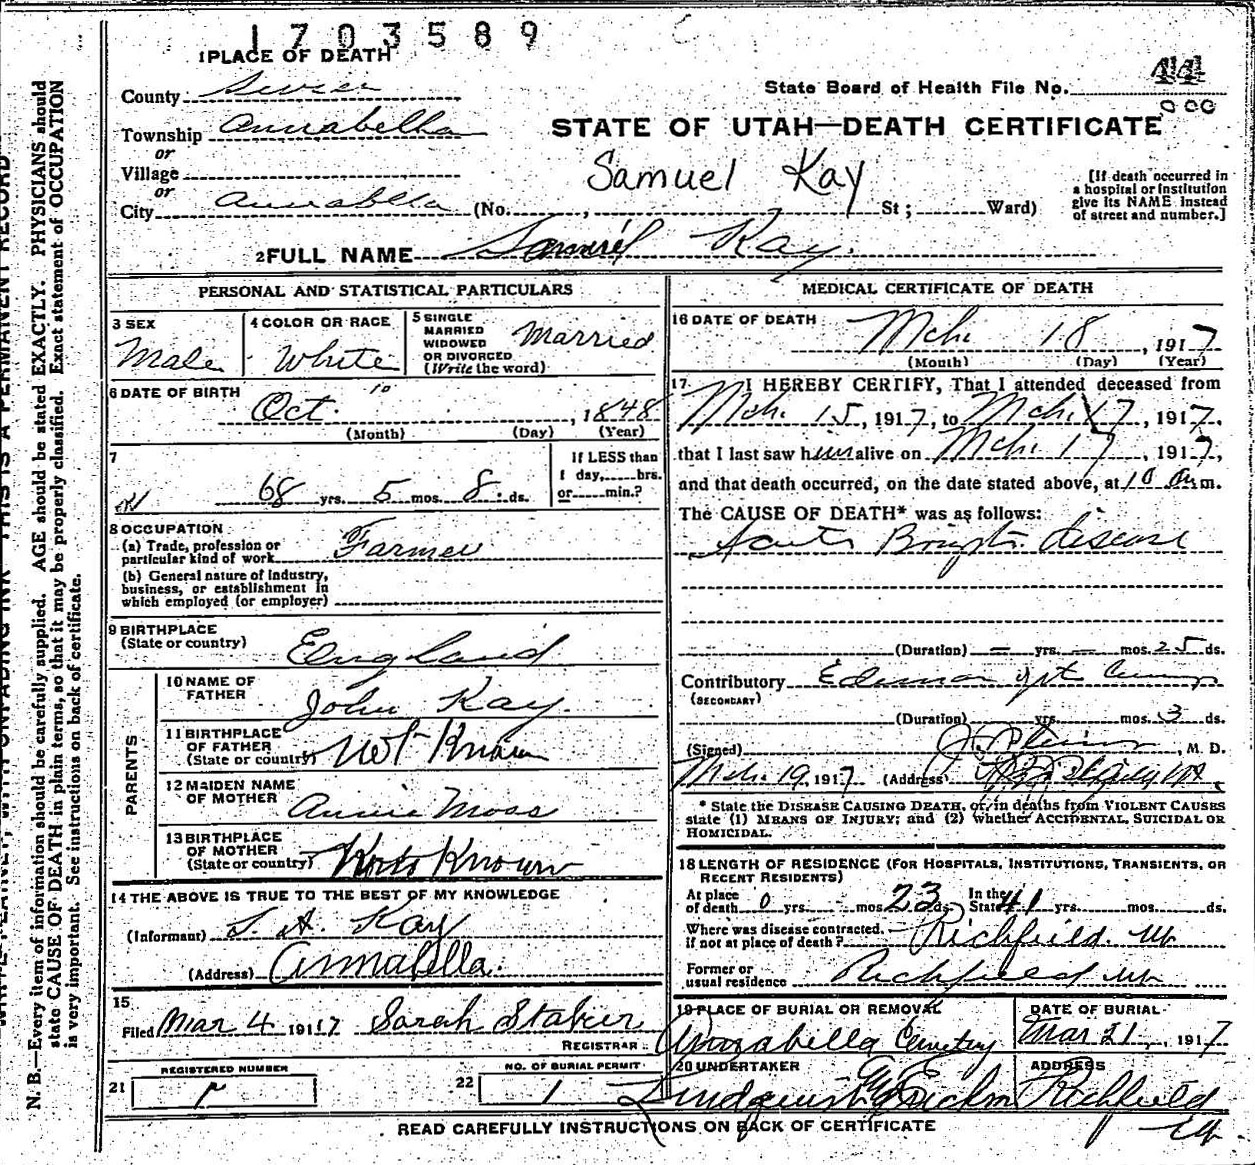 1703589
1 PLACE OF DEATH
County Sevier
State Board of Health File No. 44
000
Township Annabella
STATE OF UTAH—DEATH CERTIFICATE
or
Village
Samuel Kay
[If death occurred in
a hospital or institution
give its NAME instead
of street and number.]
or
City Annabella (No. , St; Ward)
2 FULL NAME Samuel Kay.
PERSONAL AND STATISTICAL PARTICULARS
3 SEX
Male
4 COLOR OR RACE
White
5 SINGLE
MARRIED
WIDOWED
OR DIVORCED
(Write the word)
Married
6 DATE OF BIRTH
Oct. 10, 1848
(Month) (Day) (Year)
7
68 yrs. 5 mos. 8. ds.
If LESS than
1 day, hrs.
or min.?
8 OCCUPATION
(a) Trade, profession or
particular kind of work Farmer
(b) General nature of industry,
business, or establishment in
which employed (or employer)
9 BIRTHPLACE
(State or country) England
PARENTS
10 NAME OF
FATHER John Kay.
11 BIRTHPLACE
OF FATHER
(State or country) Not Known
12 MAIDEN NAME
OF MOTHER Annie Moss
13 BIRTHPLACE
OF MOTHER
(State or country) Not Known
14 THE ABOVE IS TRUE TO THE BEST OF MY KNOWLEDGE
(Informant) S. A. Kay
(Address) Annabella.
15
Filed Mar 4 1917 Sarah
REGISTRAR
REGISTERED NUMBER
21
NO. OF BURIAL PERMIT
22 1
MEDICAL CERTIFICATE OF DEATH
16 DATE OF DEATH
Mch. 18, 1917
(Month) (Day) (Year)
17 I HEREBY CERTIFY, That I attended deceased from
Mch. 15, 1917, to Mch. 17, 1917,
that I last saw him alive on Mch 17, 1917,
and that death occurred, on the date stated above, at 10 am.
The CAUSE OF DEATH* was as follows:
Acute Brights disease
(Duration) — yrs. — mos. 25 ds.
Contributory
(SECONDARY)
(Duration) yrs. mos. 3 ds.
(Signed) , M. D.
Mch. 19, 1917 (Address)
* State the DISEASE CAUSING DEATH, or, in deaths from VIOLENT CAUSES
state (1) MEANS OF INJURY; and (2) whether ACCIDENTAL, SUICIDAL OR
HOMICIDAL.
18 LENGTH OF RESIDENCE (FOR HOSPITALS, INSTITUTIONS, TRANSIENTS, OR
RECENT RESIDENTS)
At place
of death 0 yrs. mos. 23 ds. In the
State 41 yrs. mos. ds.
Where was disease contracted,
if not at place of death? Richfield. Ut
Former or
usual residence Richfield Ut
19 PLACE OF BURIAL OR REMOVAL
Annabella Cemetery
DATE OF BURIAL
Mar 21, 1917
20 UNDERTAKER
ADDRESS
Richfield
Ut.
READ CAREFULLY INSTRUCTIONS ON BACK OF CERTIFICATE
N. B.—Every item of information should be carefully supplied. AGE should be stated EXACTLY. PHYSICIANS should
state CAUSE OF DEATH in plain terms, so that it may be properly classified. Exact statement of OCCUPATION
is very important. See instructions on back of certificate.